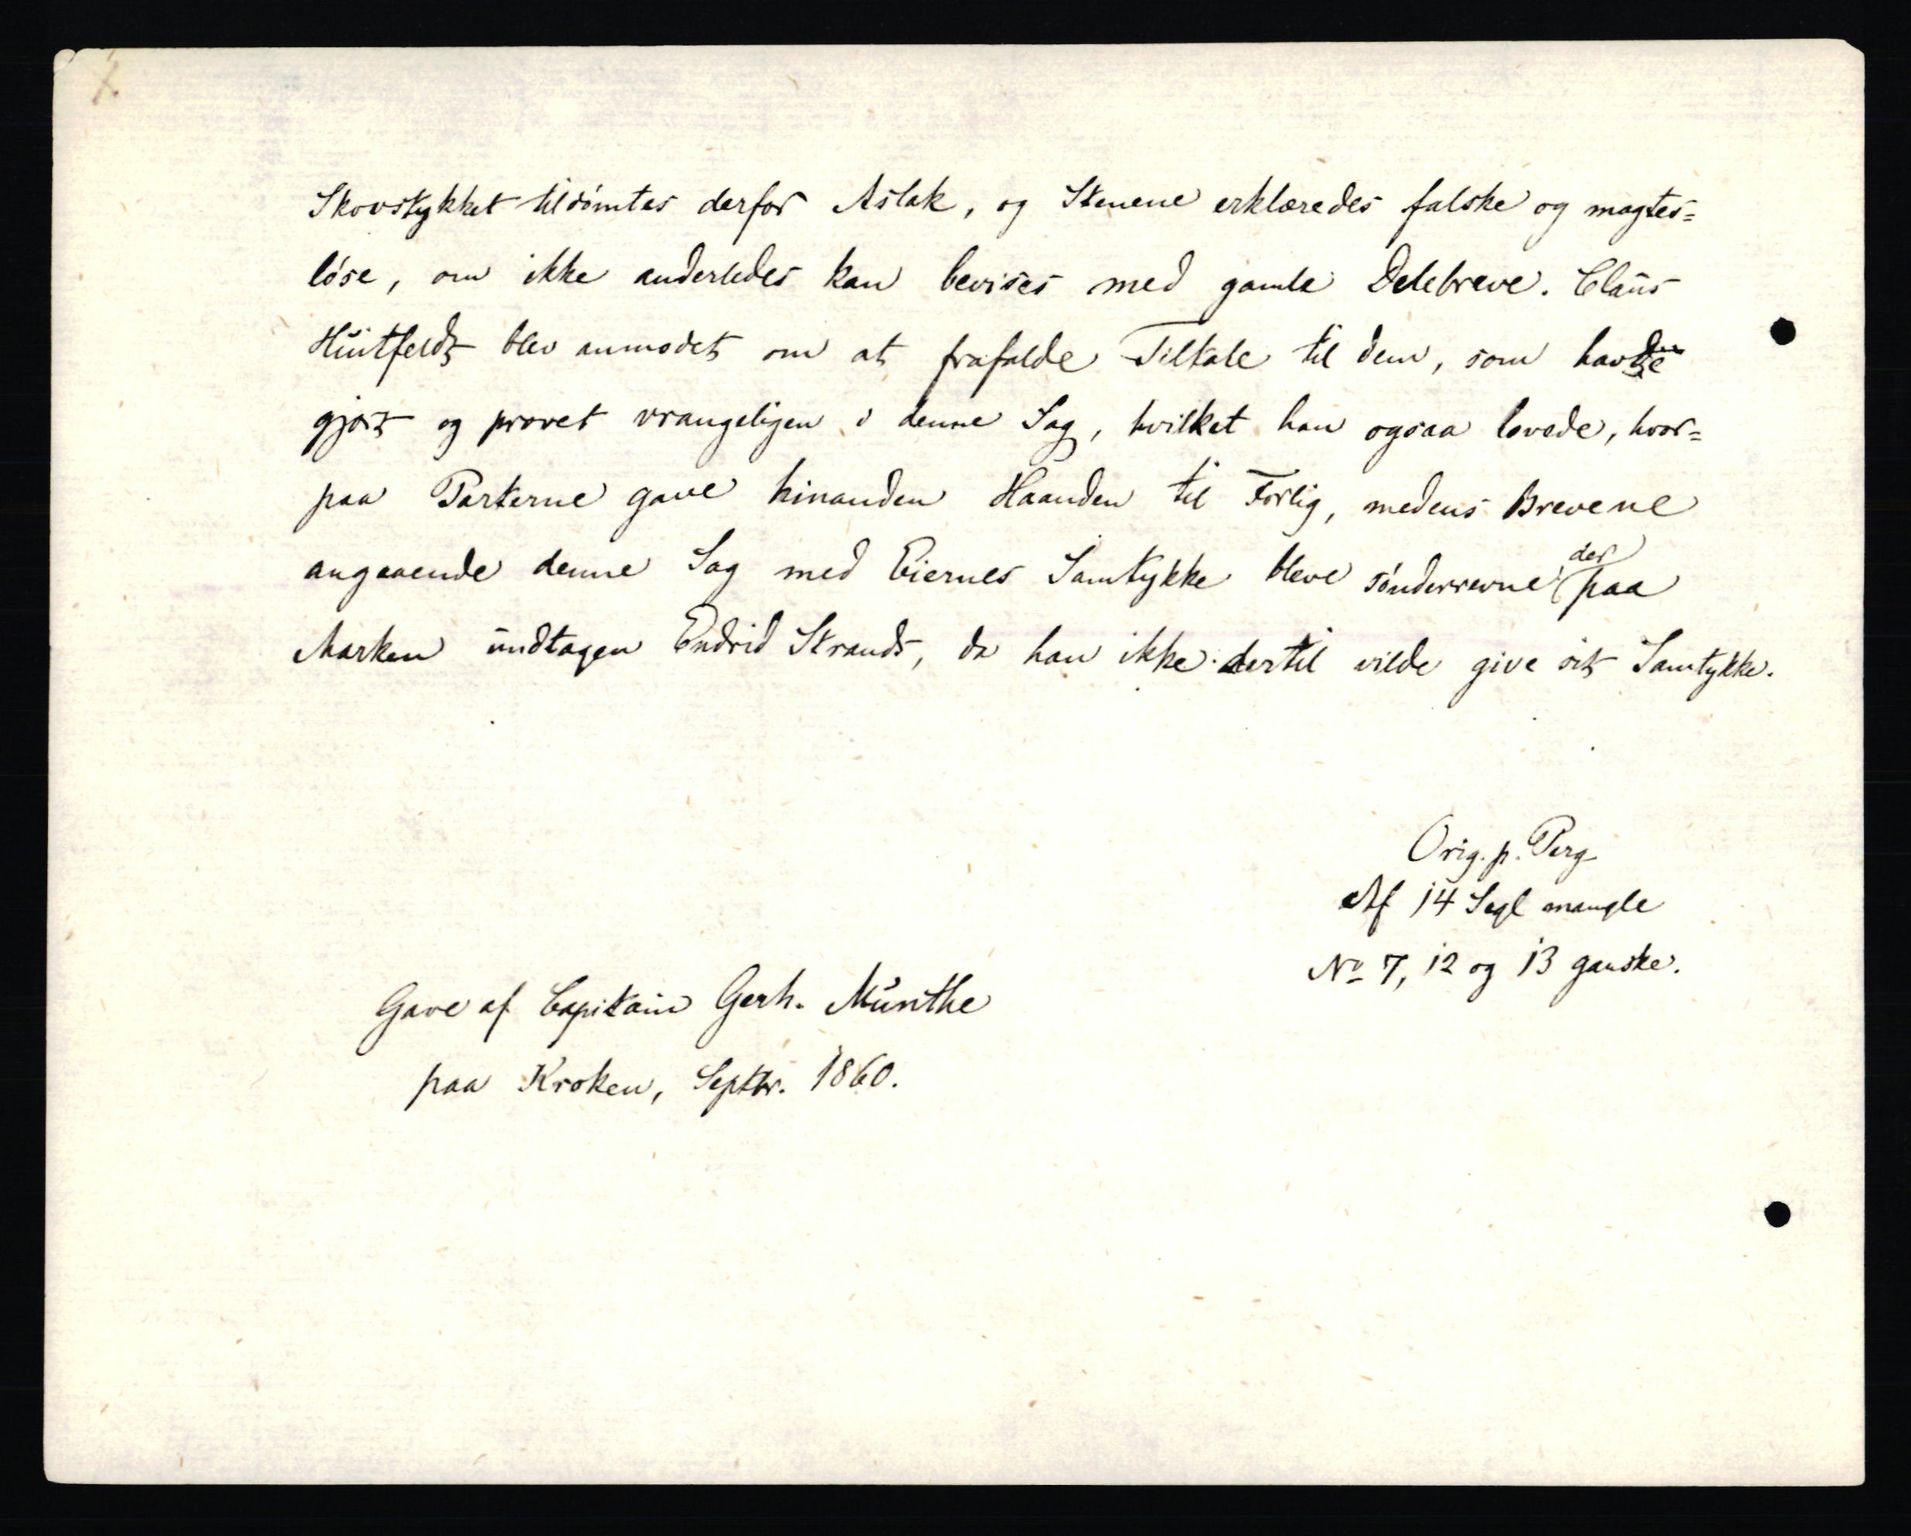 Skovstykket tildømtes derfor Aslak, og Stenene erklæredes falske og magtes=
løse, om ikke anderledes kan bevises med gamle Delebreve. Claus
Huitfeldt blev anmodet om at frafalde Tiltale til dem, som havde
gjort og prøvet vrangeligen i denne Sag, hvilket han ogsaa lovede, hvor=
paa Parterne gave hinanden Haanden til Forlig, medens Brevene
angaaende denne Sag med Eiernes Samtykke bleve sønderrevne der paa
Marken undtagen Endrid Strands, da han ikke dertil vilde give sit Samtykke.
Orig. p. Perg
Af 14 Segl mangle
No 7, 12 og 13 ganske.
Gave af Capitain Gerh. Munthe
paa Kroken, Septbr. 1860.